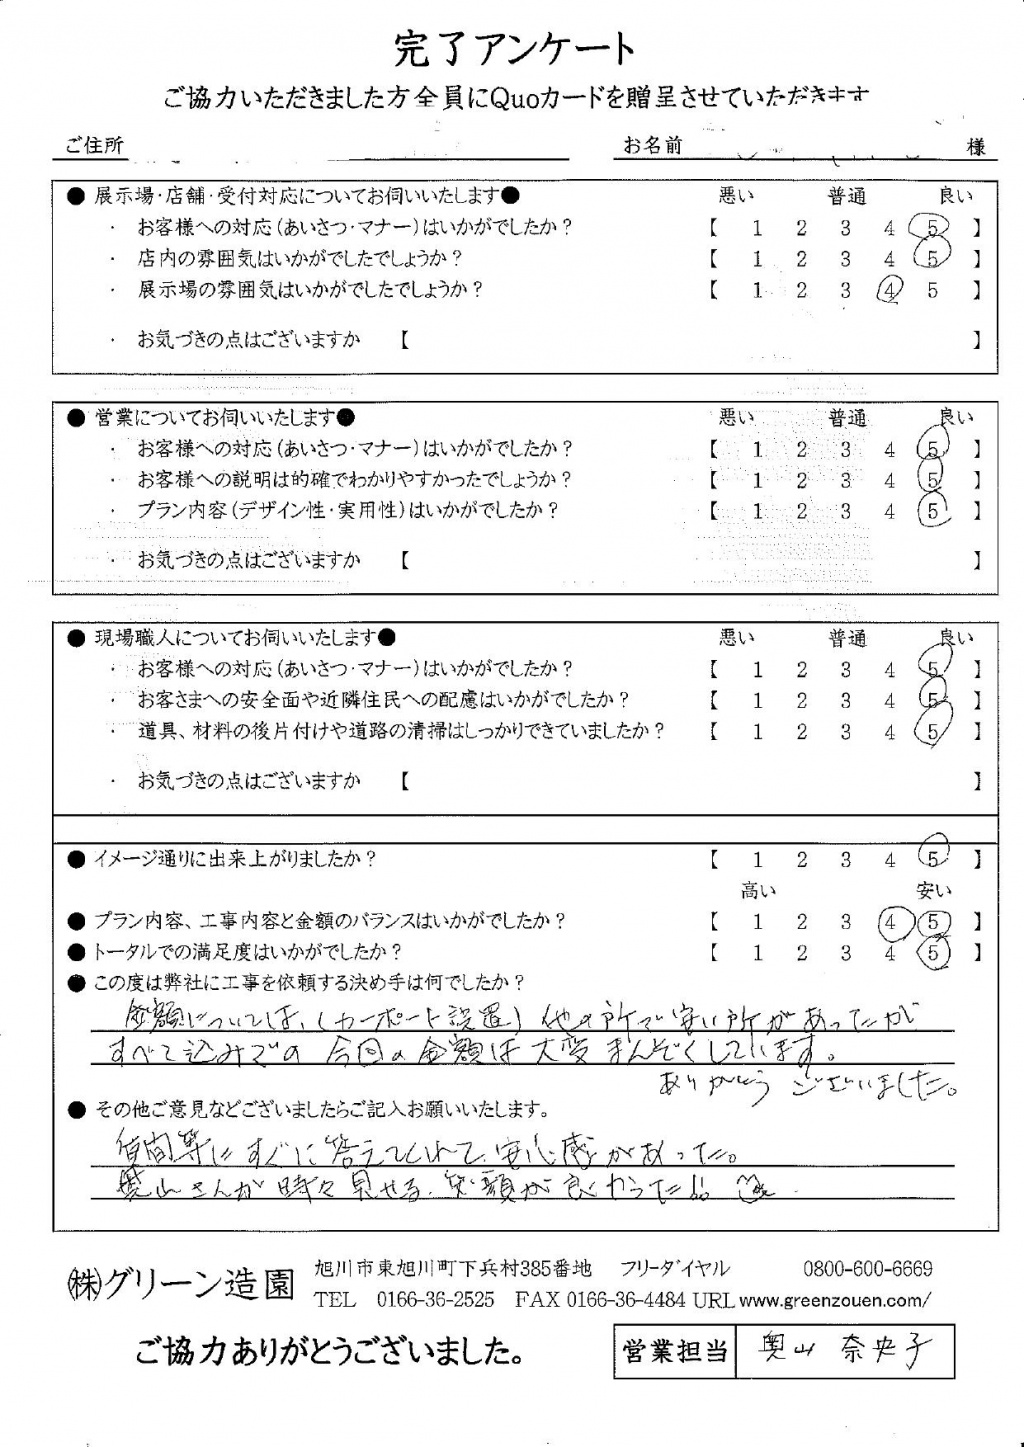 完了アンケート
ご協力いただきました方全員にQuoカードを贈呈させていただきます
ご住所 お名前 様
● 展示場・店舗・受付対応についてお伺いいたします● 悪い 普通 良い
・ お客様への対応(あいさつ・マナー)はいかがでしたか? 【 1 2 3 4 5 】
・ 店内の雰囲気はいかがでしたでしょうか? 【 1 2 3 4 5 】
・ 展示場の雰囲気はいかがでしたでしょうか? 【 1 2 3 4 5 】
・ お気づきの点はございますか 【 】
● 営業についてお伺いいたします● 悪い 普通 良い
・ お客様への対応(あいさつ・マナー)はいかがでしたか? 【 1 2 3 4 5 】
・ お客様への説明は的確でわかりやすかったでしょうか? 【 1 2 3 4 5 】
・ プラン内容(デザイン性・実用性)はいかがでしたか? 【 1 2 3 4 5 】
・ お気づきの点はございますか 【 】
● 現場職人についてお伺いいたします● 悪い 普通 良い
・ お客様への対応(あいさつ・マナー)はいかがでしたか? 【 1 2 3 4 5 】
・ お客さまへの安全面や近隣住民への配慮はいかがでしたか? 【 1 2 3 4 5 】
・ 道具、材料の後片付けや道路の清掃はしっかりできていましたか? 【 1 2 3 4 5 】
・ お気づきの点はございますか 【 】
● イメージ通りに出来上がりましたか? 【 1 2 3 4 5 】
高い 安い
● プラン内容、工事内容と金額のバランスはいかがでしたか? 【 1 2 3 4 5 】
● トータルでの満足度はいかがでしたか? 【 1 2 3 4 5 】
● この度は弊社に工事を依頼する決め手は何でしたか?
金額については、(カーポート設置)他の所で安い所があったが
すべて込みでの今回の金額は大変まんぞくしています。
ありがとうございました。
● その他ご意見などございましたらご記入お願いいたします。
質問等にすぐに答えてくれて、安心感があった。
奥山さんが時々見せる、笑顔が良かった!!
㈱グリーン造園 旭川市東旭川町下兵村385番地 フリーダイヤル 0800-600-6669
TEL 0166-36-2525 FAX 0166-36-4484 URL www.greenzouen.com/
ご協力ありがとうございました。 営業担当 奥山 奈央子